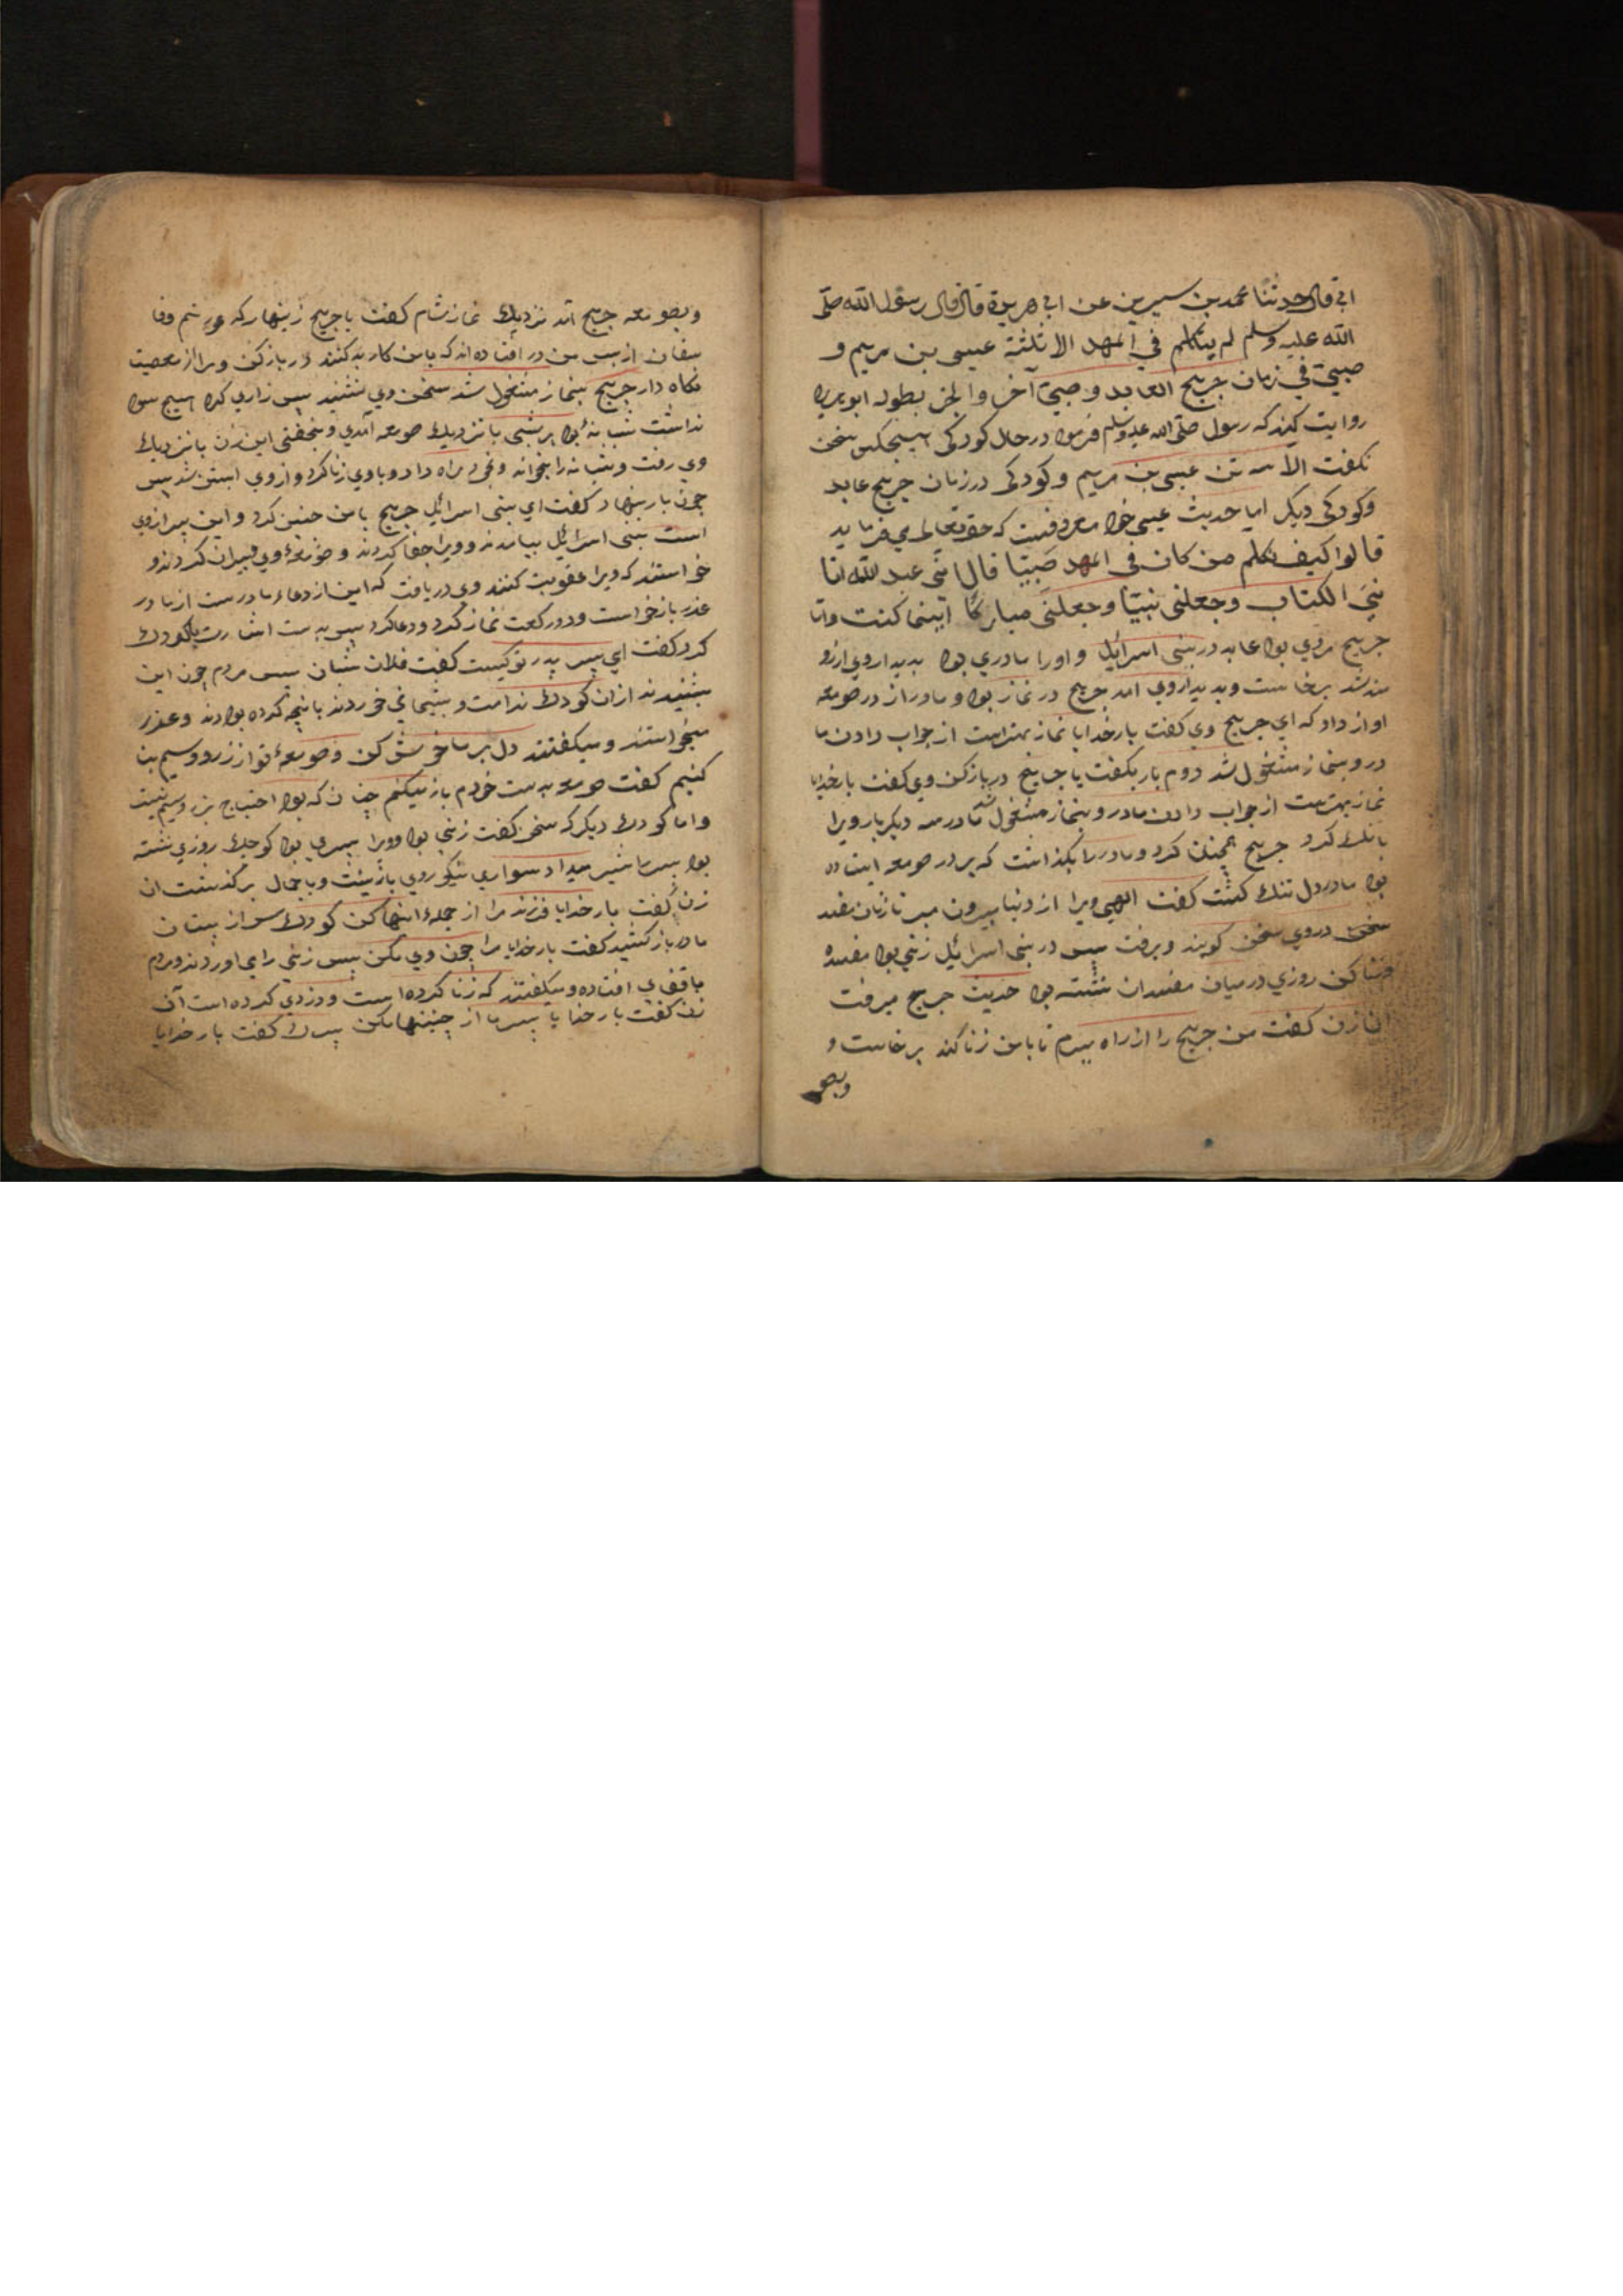 ابی قال حدثنا محمد بن سیرین عن ابی هریرة قال قال رسول الله صلی
الله علیه وسلم لم یتکلم فی المهد الا ثلثة عیسی بن مریم و
صبیّ فی زمان جریج العابد وصبیّ آخر والخبر بطوله ابو هریره
روایت کند که رسول صلی الله علیه وسلم فرمود در حال کودکی هیچکس سخن
نکفت الا سه تن عیسی بن مریم وکودکی در زمان جریج عابد
وکودکی دیکر اما حدیث عیسی خود معروفست که حقتعالی می فرماید
قالوا کیف نکلم من کان فی المهد صبیّا قال انی عبد الله اتا
نیَ الکتاب وجعلنی نبیّا وجعلنی مبارکا اینما کنت واما
جریج مردی بود عابد در بنی اسرائیل واورا مادری بود بدیدار وی ارزو
مند شد برخاست وبدیدار وی امد جریج در نماز بود ومادر از در صومعه
اواز داد که ای جریج وی کفت بارخدایا نماز بهتراست از جواب دادن ما
در وبنماز مشغول شد دوم بار بکفت یا جریج در بازکن وی کفت بارخدایا
نماز بهترست از جواب دادن مادر وبنماز مشغول شد مادر سه دیکر بار ویرا
بانک کرد جریج همچنان کرد ومادررا بکذاشت که بر در صومعه ایستاده
بود مادر دل تنک کشت کفت الهی ویرا از دنیا بیرون مبر تا زنان مفسد
سخن در وی کویند وبرفت پس در بنی اسرائیل زنی بود مفسده
روزی در میان مفسدان نشسته بود حدیث جریج میرفت
ان زن کفت من جریج را از راه ببرم تا با من زنا کند برخاست و
وبصو
وبصومعه جریج آمد نزدیک نماز شام کفت یا جریج زینهار که
از پس من در افتاده اند که با من کار بد کنند در باز کن ومرا از معصیت
نکاه دار جریج بنماز مشغول شد سخن وی نشنید پس زاری کرد هیچ سود
نداشت شبانهٔ بود هر شبی با نزدیک صومعه آمدی وبخفتی این زن با نزدیک
وی رفت وشبانه را بخواند وبخود راه داد وباوی زنا کرد واز وی ابستن شد پس
چون بار بنهاد کفت ای بنی اسرائیل جریج با من چنین کرد واین پسر از وی
است بنی اسرائیل بیامدند وویرا جفا کردند وصومعهٔ وی ویران کردند و
خواستند که ویرا عقوبت کنند وی دریافت که این از دعاء مادرست از مادر
عذر باز خواست ودو رکعت نماز کرد ودعا کرد پس بدست اشارت بکودک
کرد کفت ای پسر پدر تو کیست کفت فلان شبان پس مردم چون این
بشنیدند از ان کودک ندامت وپشیمانی خوردند بانچه کرده بودند وعذر
میخواستند ومیکفتند دل بر ما خوش کن وصومعهٔ تو از زر وسیم بنا
کنیم کفت صومعه بدست خودم باز میکنم چنان که بود احتیاج بزر وسیم نیست
واما کودک دیکر که سخن کفت زنی بود وویرا پسری بود کوچک روزی نشسته
بود پسررا شیر میداد سواری نیکوروی بازینت وباجمال برکذشت ان
زن کفت بارخدایا فرزند مرا از جملهٔ اینها کن کودک سر از پستان
مادر باز کشید کفت بارخدایا مرا چون وی مکن پس زنی را می اوردند ومردم
باقفای افتاده ومیکفتند که زنا کرده است ودزدی کرده است آن
زن کفت بارخدایا پسر ما از چنینها مکن پسرک کفت بارخدایا